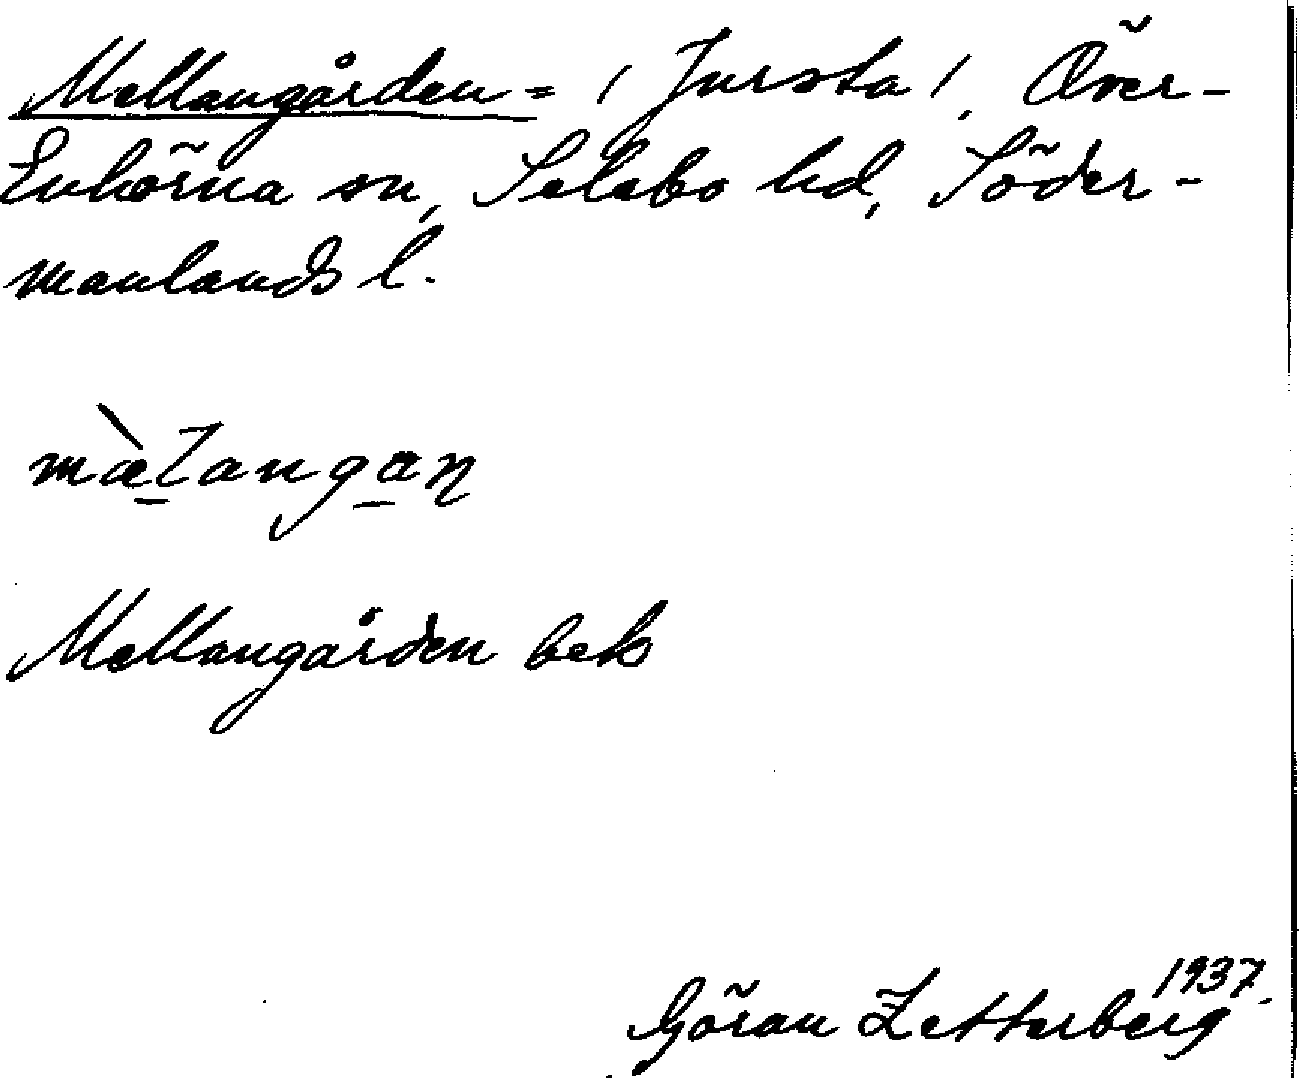 Mellangården = /Jursta/, Över-
Enhörna sn, Selebo hd, Söder-
manlands l.
mæ̀l̲anga̲ɳ
Mellangården bek
Göran Zetterberg 1937.